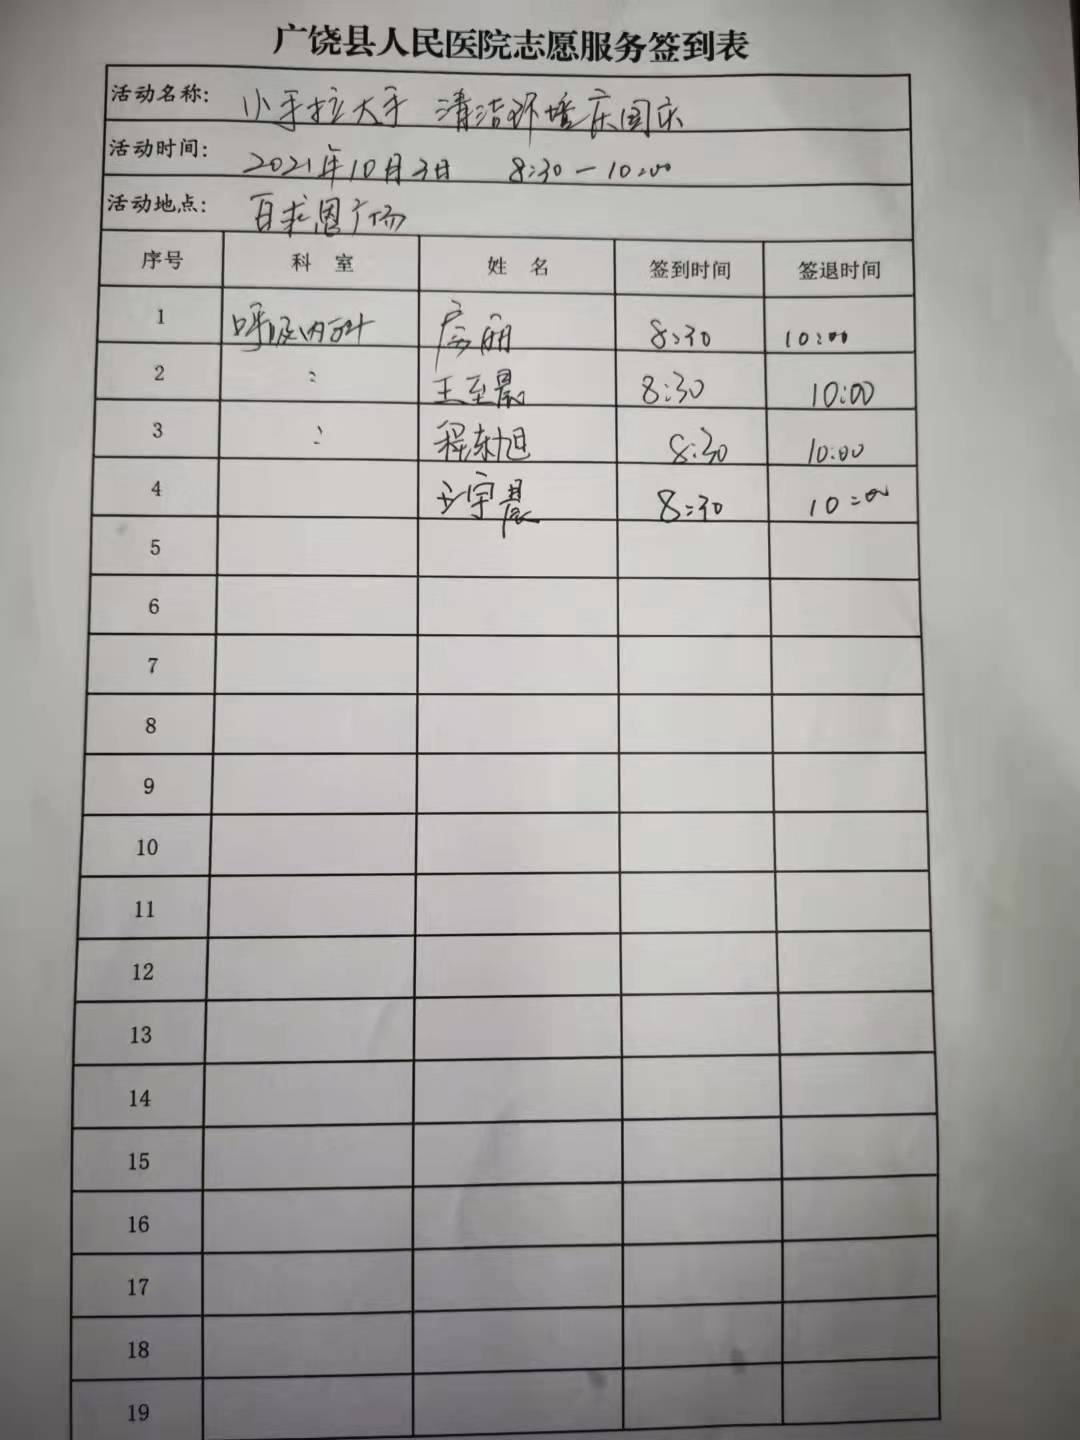 广饶县人民医院志愿服务签到表
活动名称: 小手拉大手 清洁环境庆国庆
活动时间: 2021年10月3日 8:30-10:00
活动地点: 白求恩广场
序号 科 室 姓 名 签到时间 签退时间
1 呼吸内科 房丽 8:30 10:00
2 : 王至晨 8:30 10:00
3 : 程东旭 8:30 10:00
4 宇晨 8:30 10:00
5
6
7
8
9
10
11
12
13
14
15
16
17
18
19